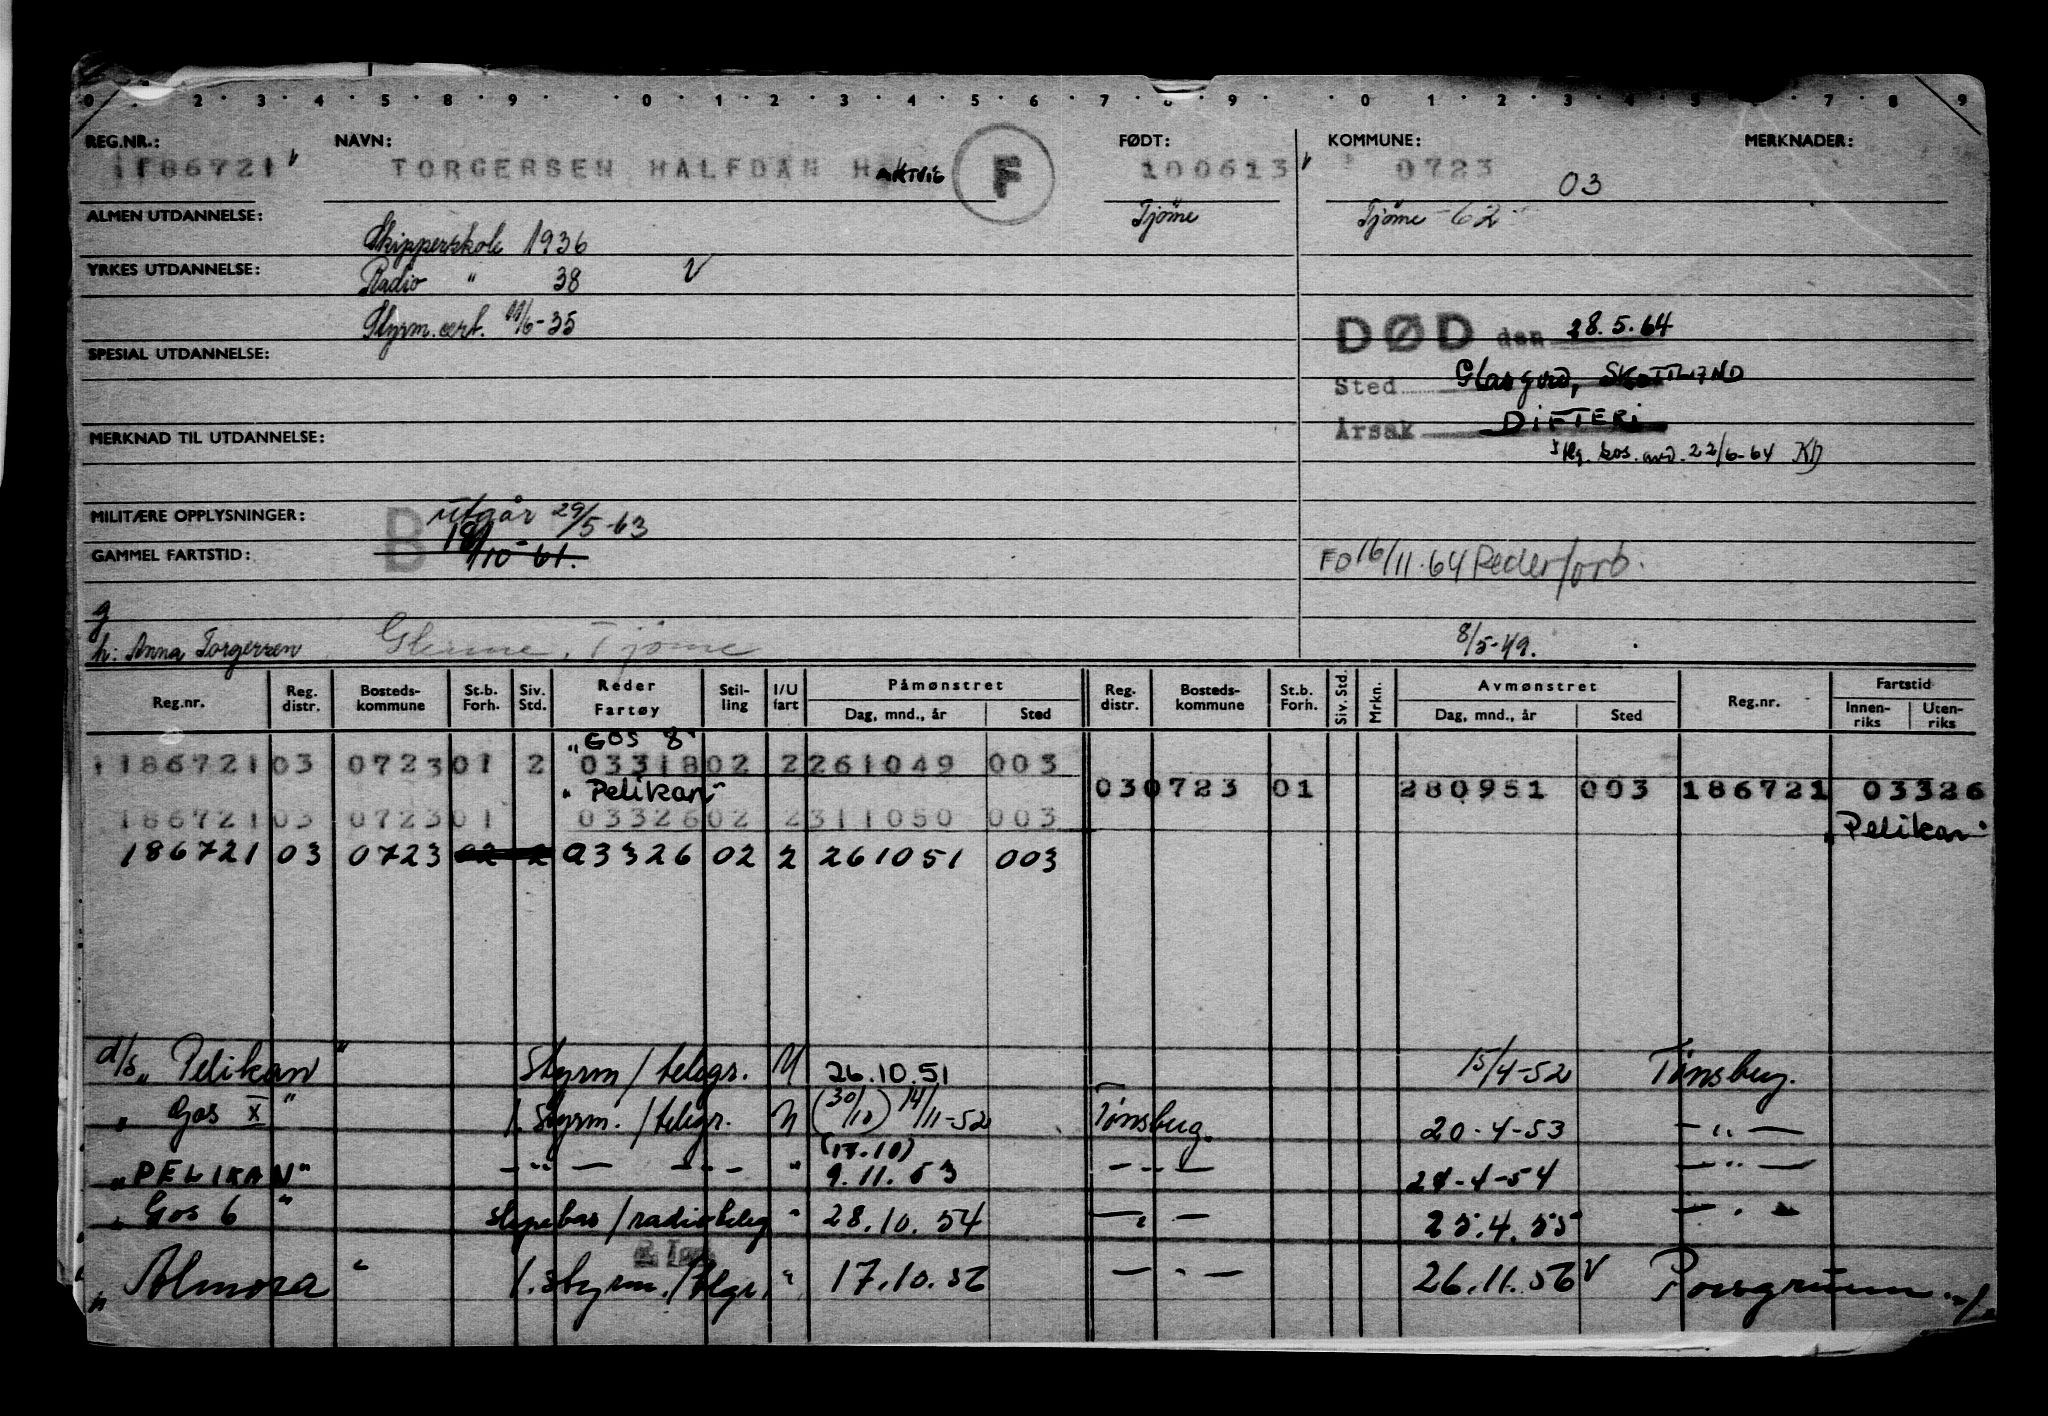 0 . 2 . 3 . 4 . 5 . 8 . 9 . 0 . 1 . 2 . 3 . 4 . 5 . 6 . 7 . 8 . 9 . 0 . 1 . 2 . 3 . 4 . 5 . 7 . 8 . 9
REG.NR.: NAVN: FØDT: KOMMUNE: MERKNADER:
186721 TORGERSEN HALFDAN HAKTVIG F 100613 0723 03
ALMEN UTDANNELSE: Tjöme Tjöme -62-
Skipperskole 1936
YRKES UTDANNELSE: Radio " 38 V
Styrm.cert. /6-35 DØD den 28.5.64
SPESIAL UTDANNELSE:
Sted Glasgow, SKOTTLAND
Årsak DIFTERI
MERKNAD TIL UTDANNELSE:
22/6-64 KD
MILITÆRE OPPLYSNINGER: B utgår 29/5-63
GAMMEL FARTSTID: /10-61. FO 16/11.64 Rederforb.
g
h: Anna Torgersen Glenne, Tjøme 8/5-49.
Reg.nr. Reg. distr. Bosteds-kommune St.b. Forh. Siv. Std. Reder Fartøy Stil-ling I/U fart Påmønstret Dag, mnd., år Sted Reg. distr. Bosteds-kommune St.b. Forh. Siv. Std. Mrkn. Avmønstret Dag, mnd., år Sted Reg.nr. Fartstid Innen-riks Uten-riks
"GOS 8"
186721 03 0723 01 2 03318 02 2 261049 003
"Pelikan" 03 0723 01 280951 003 186721 03326
186721 03 0723 01 03326 02 2 311050 003 "Pelikan"
186721 03 0723 02 2 03326 02 2 261051 003
d/s "Pelikan" Styrm/telegr. U 26.10.51 15/4-52 Tønsberg.
" Gos X " 1. Styrm./telegr. U (30/10) 14/11-52 Tønsberg. 20-4-53 - " -
(13.10)
"PELIKAN" - " - - " - " 9.11.53 - " - 24-4-54 - " -
" Gos 6 " /radioteleg " 28.10.54 - " - 25.4.55 - " -
" Almora " 1. styrm./tlgr. " 17.10.56 - " - 26.11.56 V Porsgrunn